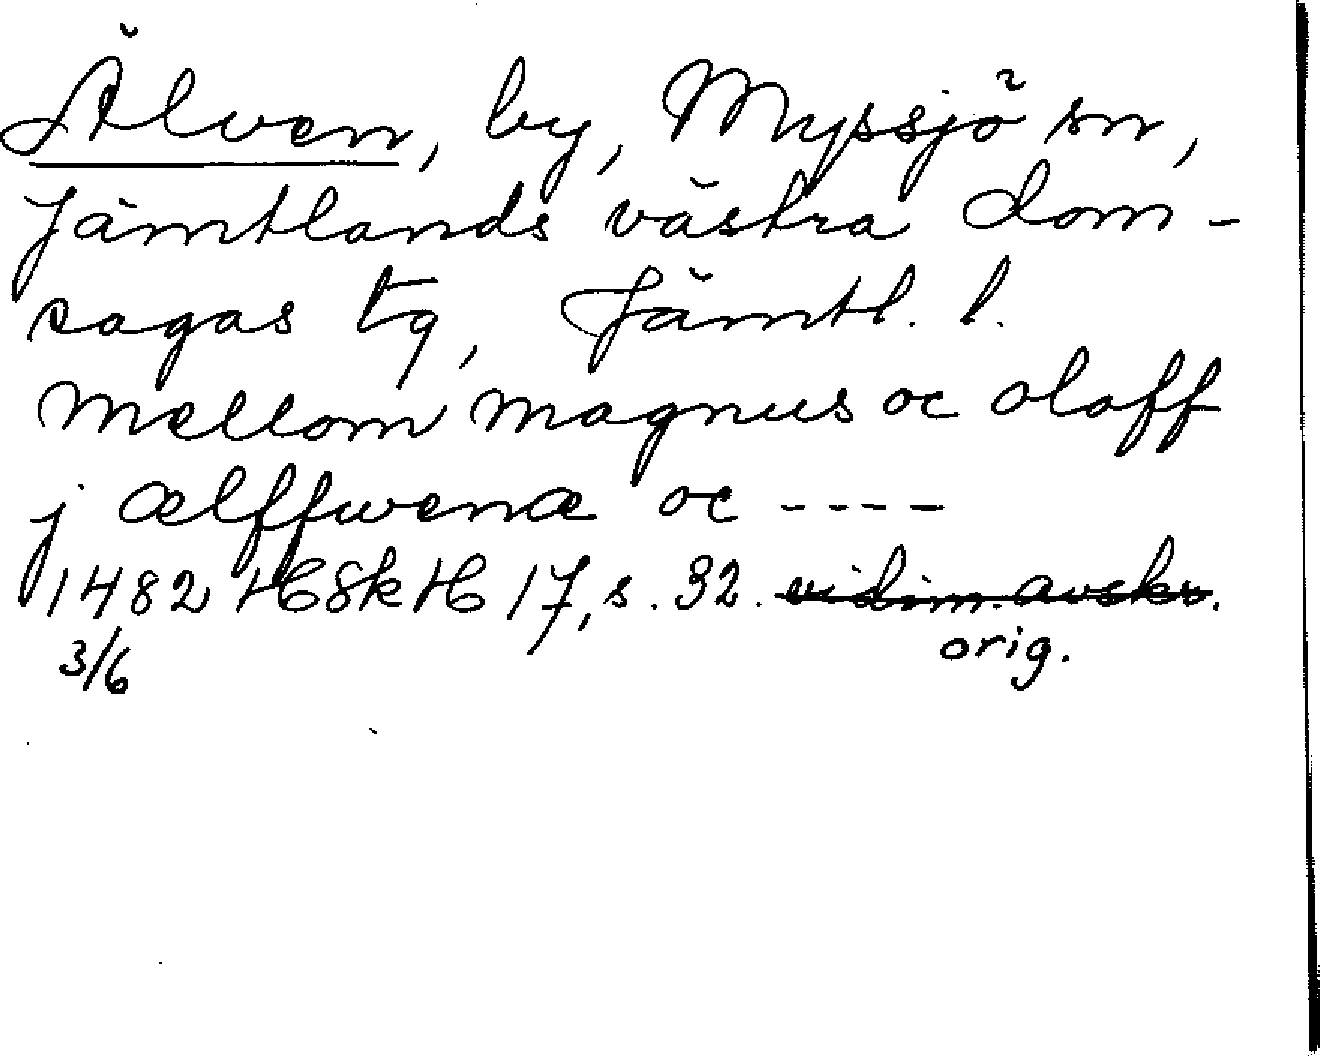 Älven, by, Myssjö sn,
Jämtlands västra dom-
sagas tg, Jämtl. l.
Mellom magnus oc olaff
j ælffwenæ oc ----
1482 HSkH 17, s. 32. vidim. avskr.
3/6 orig.